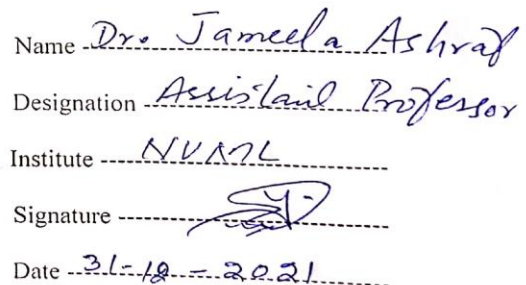 Name Dr. Jameela Ashraf
Designation Assistant Professor
Institute NUML
Signature
Date 31-12-2021